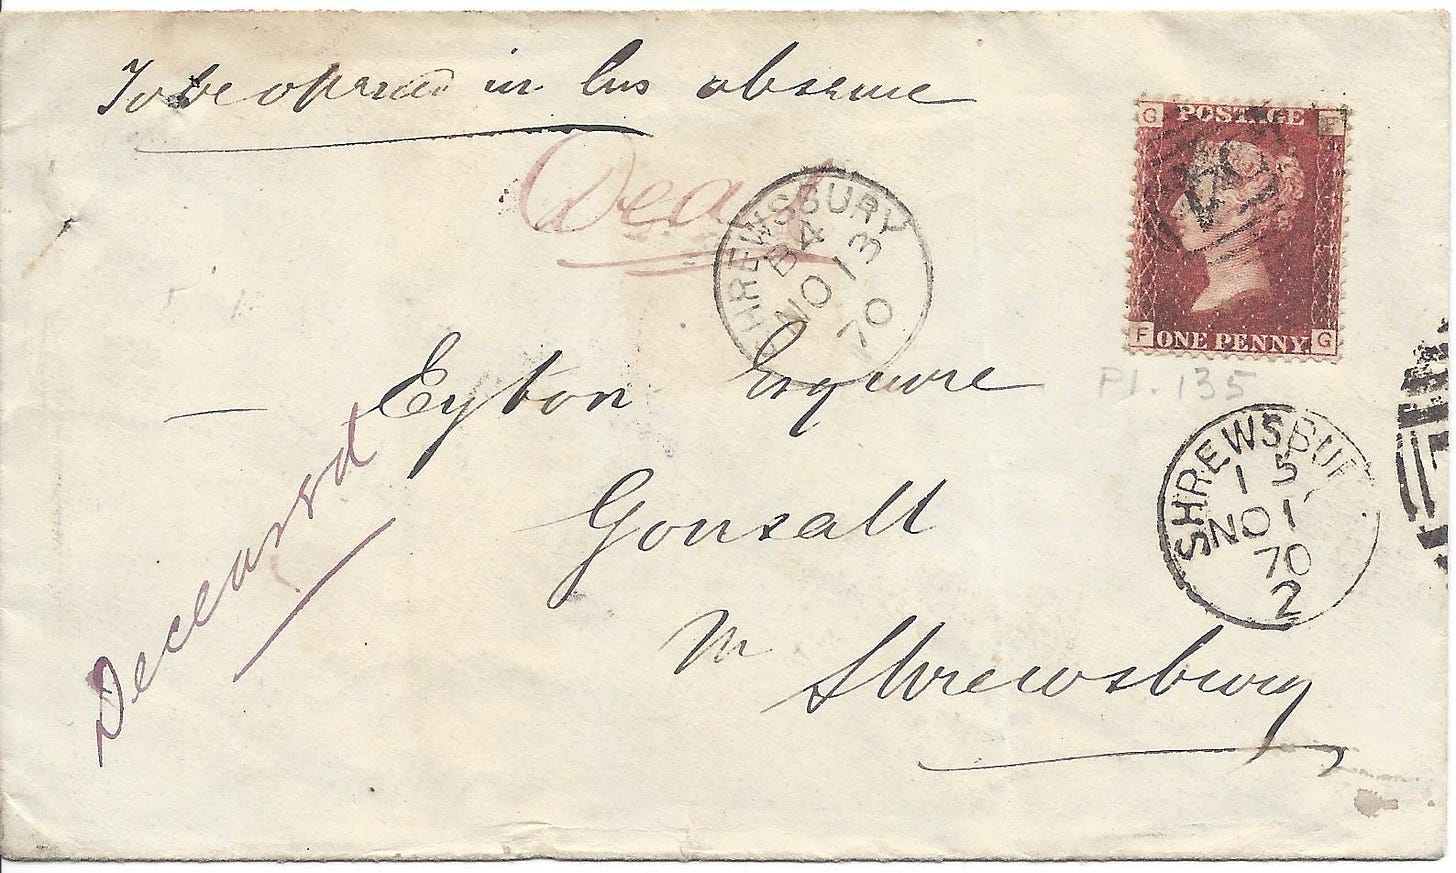 To be opened in his absence
Dead
SHREWSBURY
B4
NO 13
70
G POSTAGE F
F ONE PENNY G
Pl. 135
— Eyton Esquire
Gonsall
Nr Shrewsbury
SHREWSBURY
15
NO 1
70
2
Deceased